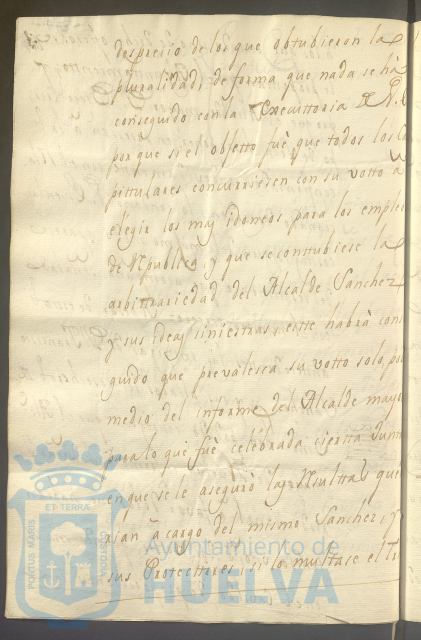 desprecio de los que obtubieron la
pluralidad, de forma que nada se hà
conseguido con la Executtoria
porque si el objetto fuè que todos los
pittulares concurriesen con su votto à
elegir los mas idoneos para los emple
de Republica, y que se conttubiese la
arbittrariedad del Alcalde Sanchez
y sus ideas siniestras, estte habrà con
guido que prevalesca su votto solo, po
medio del informe del Alcalde mayo
para lo que fuè celebrada cierta Junt
en que se le asegurò las Resulttas que
àcargo del mismo Sanchez, y
sus Protecttores, si lo multase el Tr
PORTUS MARIS
ET TERRÆ
CUSTODIA
Ayuntamiento de
HUELVA